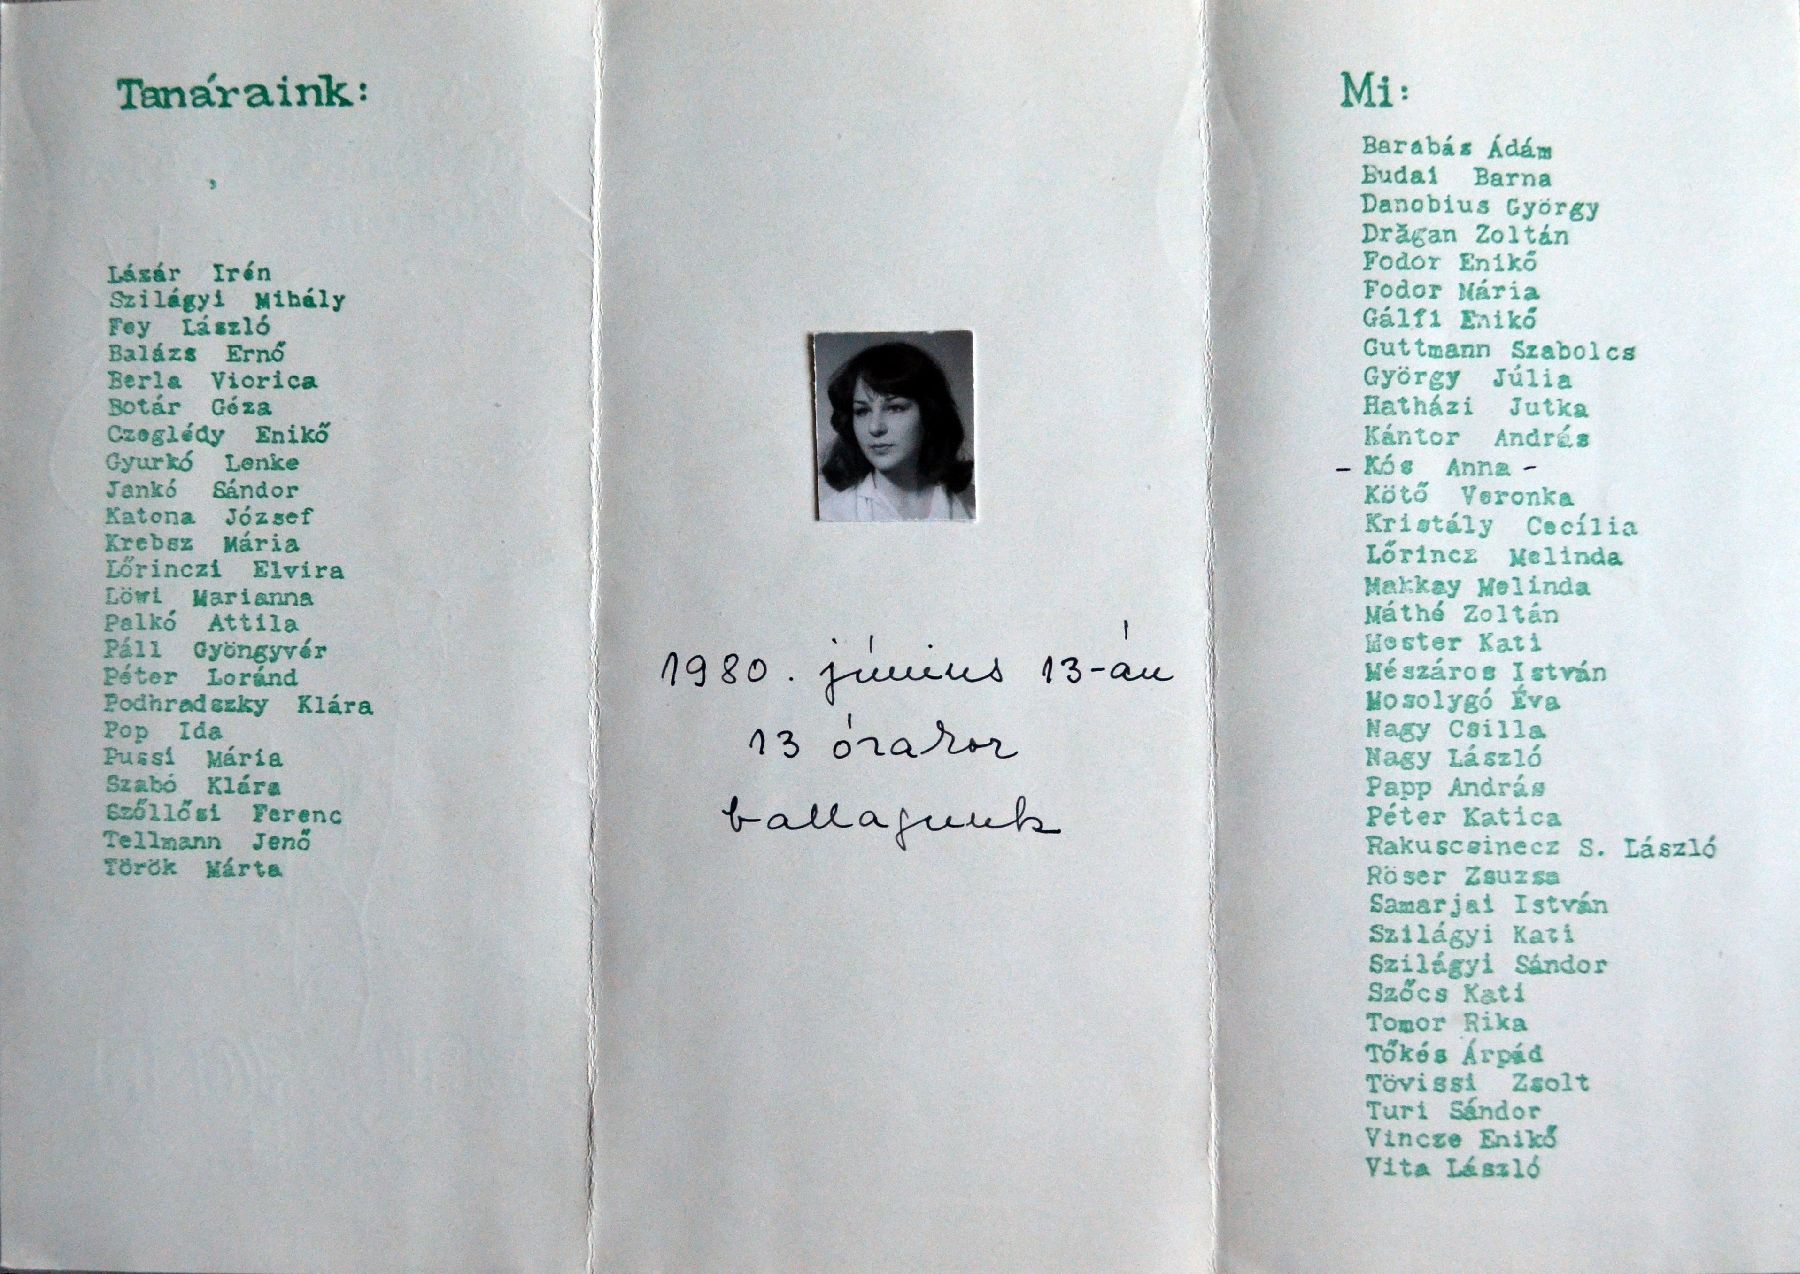 Tanáraink:
Lázár Irén
Szilágyi Mihály
Fey László
Balázs Ernő
Berla Viorica
Botár Géza
Czeglédy Enikő
Gyurkó Lenke
Jankó Sándor
Katona József
Krebsz Mária
Lőrinczi Elvira
Löwi Marianna
Palkó Attila
Páll Gyöngyvér
Péter Loránd
Podhradszky Klára
Pop Ida
Pussi Mária
Szabó Klára
Szőllősi Ferenc
Tellmann Jenő
Török Márta
1980. június 13-án
13 órakor
ballagunk
Mi:
Barabás Ádám
Budai Barna
Danobius György
Drăgan Zoltán
Fodor Enikő
Fodor Mária
Gálfi Enikő
Guttmann Szabolcs
György Júlia
Hatházi Jutka
Kántor András
- Kós Anna -
Kötő Veronka
Kristály Cecília
Lőrincz Melinda
Makkay Melinda
Máthé Zoltán
Mester Kati
Mészáros István
Mosolygó Éva
Nagy Csilla
Nagy László
Papp András
Péter Katica
Rakuscsinecz S. László
Röser Zsuzsa
Samarjai István
Szilágyi Kati
Szilágyi Sándor
Szőcs Kati
Tomor Rika
Tőkés Árpád
Tövissi Zsolt
Turi Sándor
Vincze Enikő
Vita László